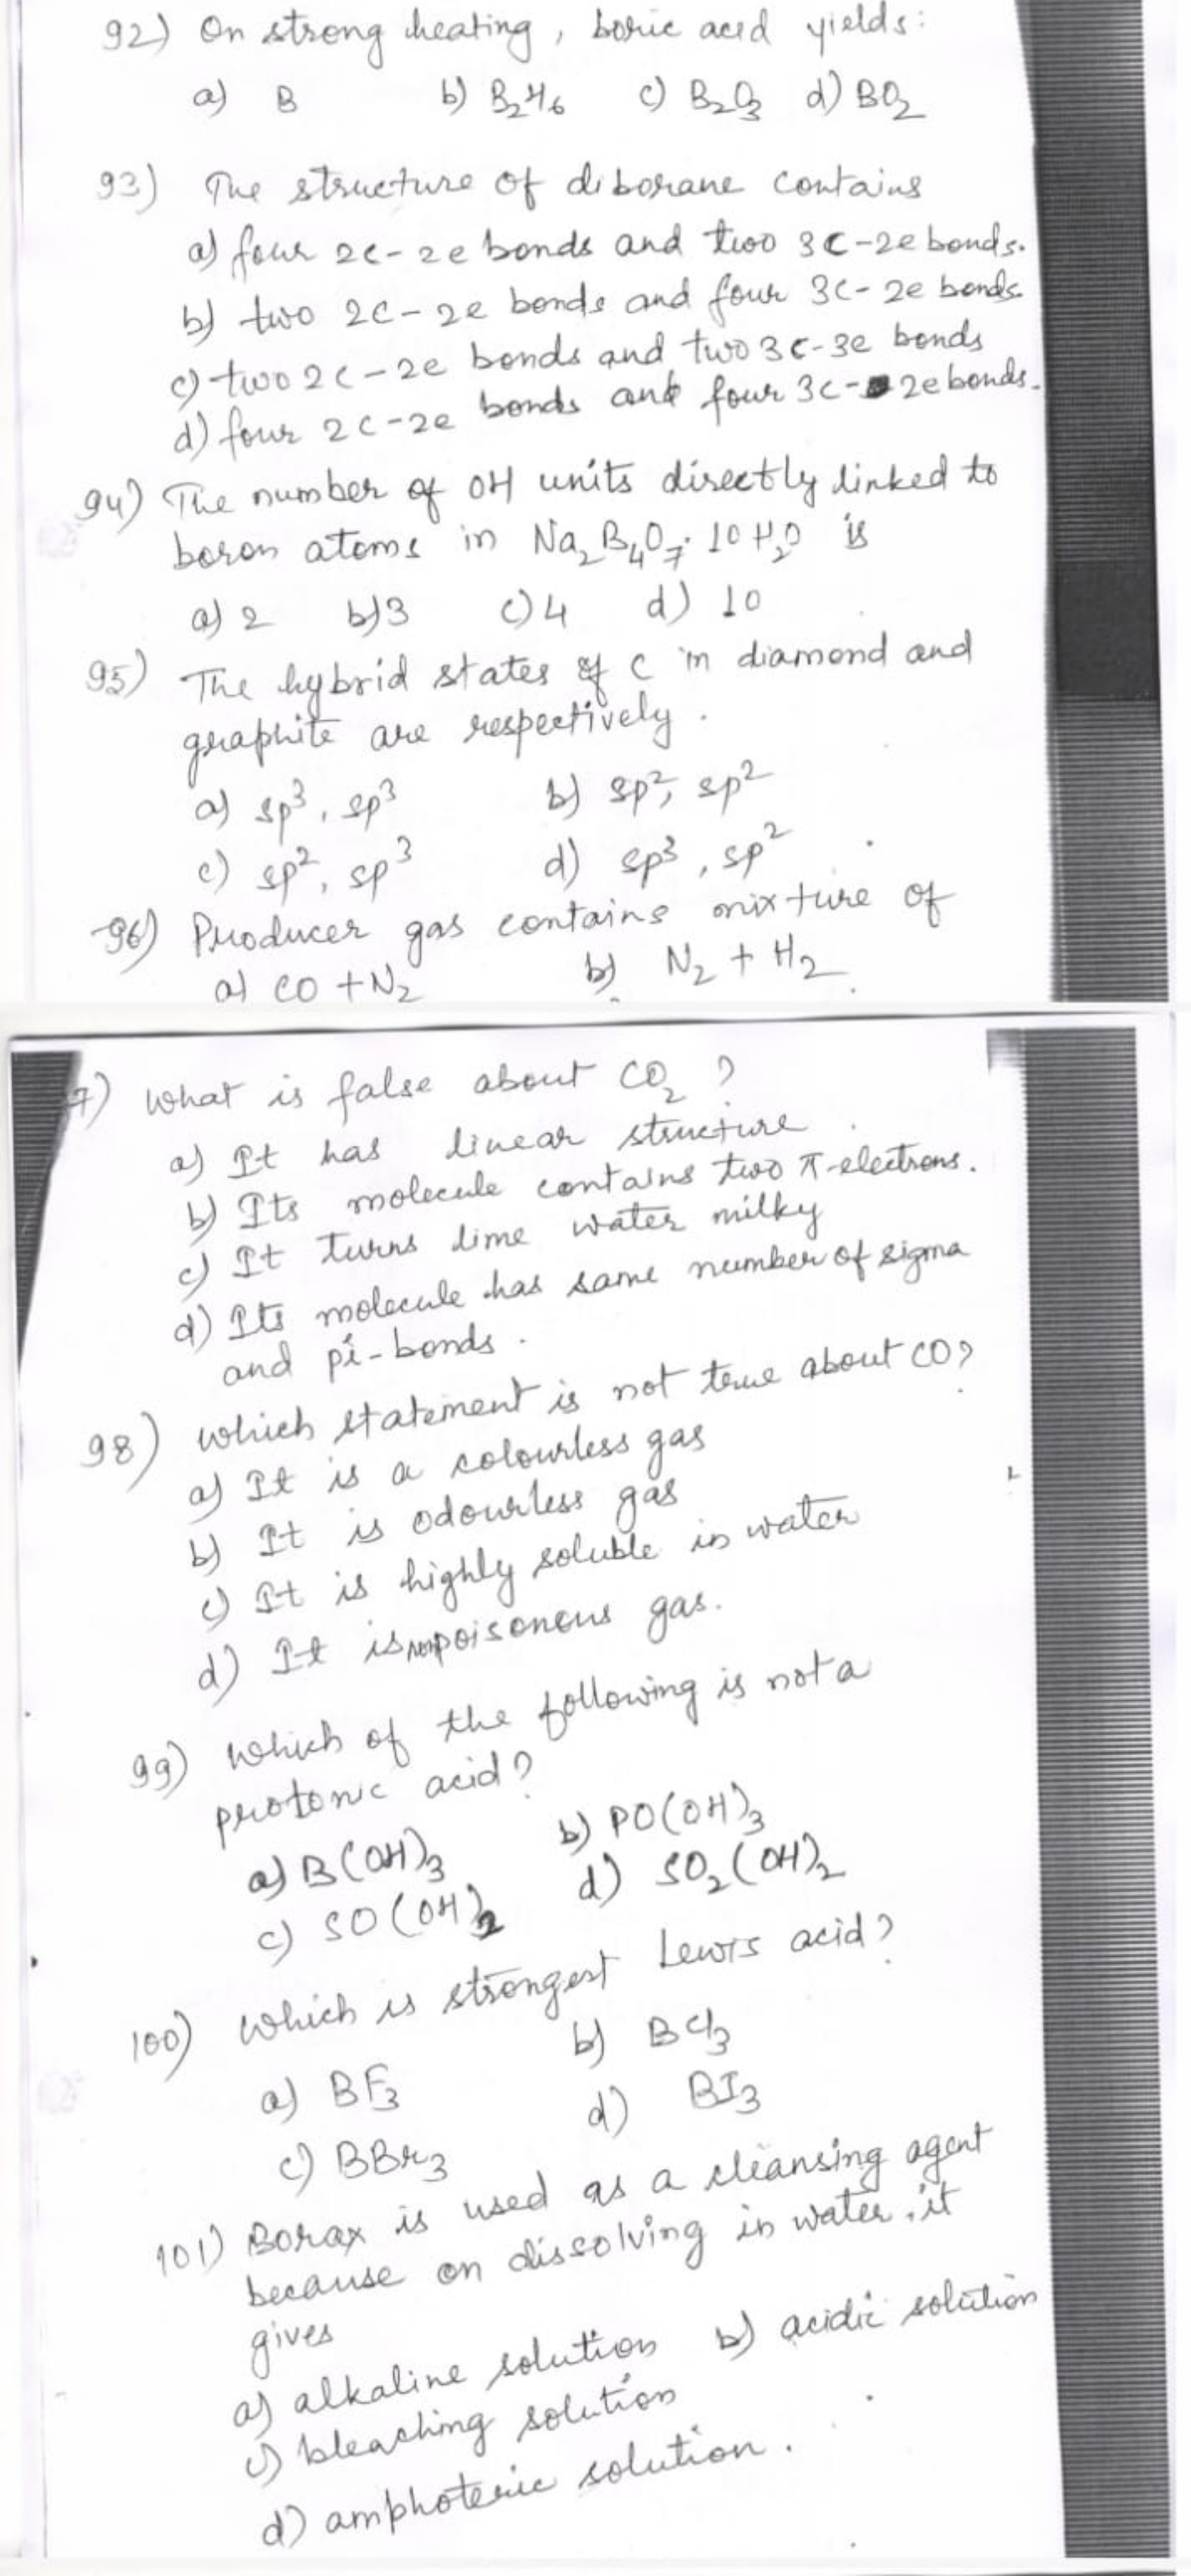 92) On strong heating, boric acid yields:
a) B b) B₂H₆ c) B₂O₃ d) BO₂
93) The structure of diborane contains
a) four 2c-2e bonds and two 3c-2e bonds.
b) two 2c-2e bonds and four 3c-2e bonds.
c) two 2c-2e bonds and two 3c-3e bonds
d) four 2c-2e bonds and four 3c-2e bonds.
94) The number of OH units directly linked to
boron atoms in Na₂B₄O₇·10H₂O is
a) 2 b) 3 c) 4 d) 10
95) The hybrid states of C in diamond and
graphite are respectively.
a) sp³, sp³ b) sp², sp²
c) sp², sp³ d) sp³, sp²
96) Producer gas contains mixture of
a) CO + N₂ b) N₂ + H₂
7) what is false about CO₂?
a) It has linear structure.
b) Its molecule contains two π-electrons.
c) It turns lime water milky
d) Its molecule has same number of sigma
and pi-bonds.
98) which statement is not true about CO?
a) It is a colourless gas
b) It is odourless gas
c) It is highly soluble in water
d) It is nonpoisonous gas.
99) which of the following is not a
protonic acid?
a) B(OH)₃ b) PO(OH)₃
c) SO(OH)₂ d) SO₂(OH)₂
100) which is strongest Lewis acid?
a) BF₃ b) BCl₃
c) BBr₃ d) BI₃
101) Borax is used as a cleansing agent
because on dissolving in water, it
gives
a) alkaline solution b) acidic solution
c) bleaching solution
d) amphoteric solution.